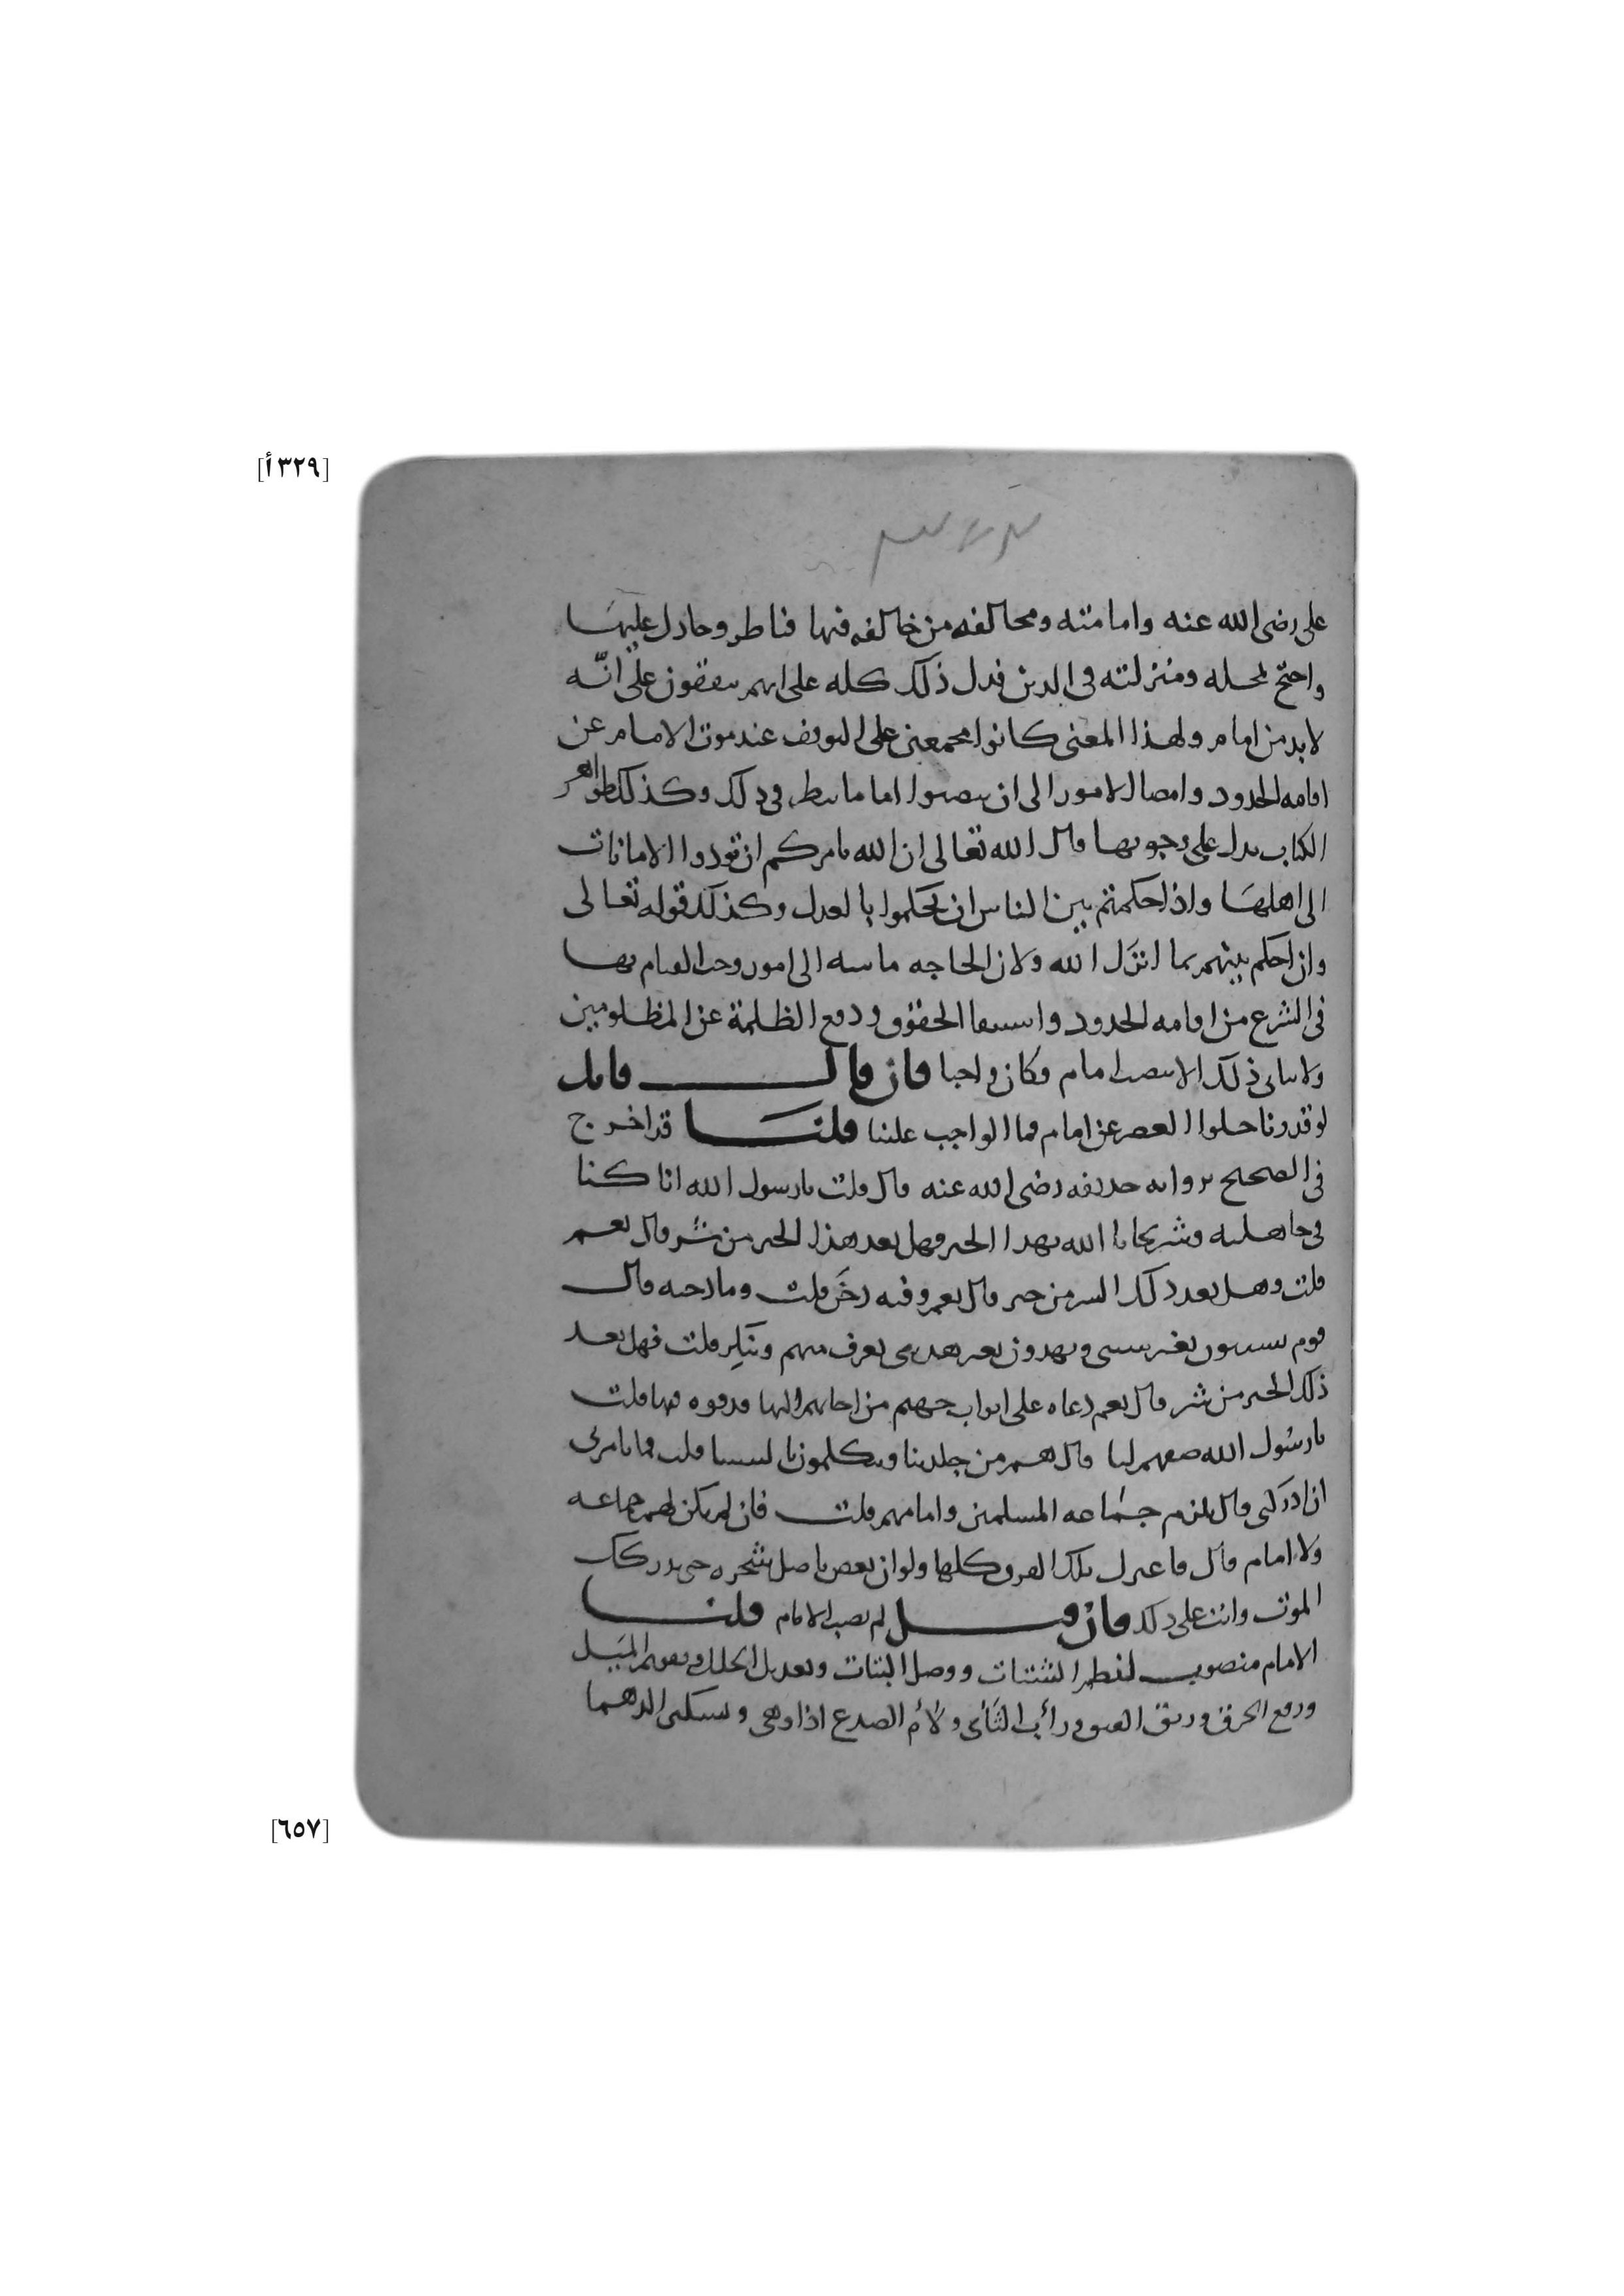 [٣٢٩أ]
على رضى الله عنه وامامته ومخالفه من خالفه فيها فناظر وجادل عليها
واحتج لمحله ومنزلته فى الدين فدل ذلك كله على انهم متفقون على انّه
لا بد من امام ولهذا المعنى كانوا مجمعين على التوقف عند موت الامام عن
اقامه الحدود وامضا الامور الى ان ينصبوا اماما ينظر فى ذلك وكذلك ظواهر
الكتاب يدل على وجوبها قال الله تعالى ان الله يامركم ان تودوا الامانات
الى اهلها واذا حكمتم بين الناس ان تحكموا بالعدل وكذلك قوله تعالى
وان احكم بينهم بما انزل الله ولان الحاجه ماسه الى امور وجب القيام بها
فى الشرع من اقامه الحدود واستيفا الحقوق ودفع الظلمة عن المظلومين
ولا يتاتى ذلك الا بنصب امام وكان واجبا فان قال قايل
لو قدرنا خلوا العصر عن امام فما الواجب علينا قلنا قد اخرج
فى الصحيح بروايه حذيفه رضى الله عنه قال قلت يا رسول الله انا كنا
فى جاهليه وشر فجانا الله بهذا الخير فهل بعد هذا الخير من شر قال نعم
قلت وهل بعد ذلك الشر من خير قال نعم وفيه دخن قلت وما دخنه قال
قوم يستنون بغير سنتى ويهدون بغير هديى تعرف منهم وتنكر قلت فهل بعد
ذلك الخير من شر قال نعم دعاه على ابواب جهنم من اجابهم اليها قذفوه فيها قلت
يا رسول الله صفهم لنا قال هم من جلدتنا ويتكلمون بالسنتنا قلت فما تامرنى
ان ادركنى قال تلزم جماعه المسلمين وامامهم قلت فان لم يكن لهم جماعه
ولا امام قال فاعتزل تلك الفرق كلها ولو ان تعض باصل شجره حتى يدركك
الموت وانت على ذلك فان قيل لم نصب الامام قلنا
الامام منصوب لنظم الشتات ووصل البتات وتعديل الخلل وتقويم الميل
ورقع الخرق ورتق الفتق ورأب الثأى ولأم الصدع اذا وهى وتسكين الدهما
[٦٥٧]